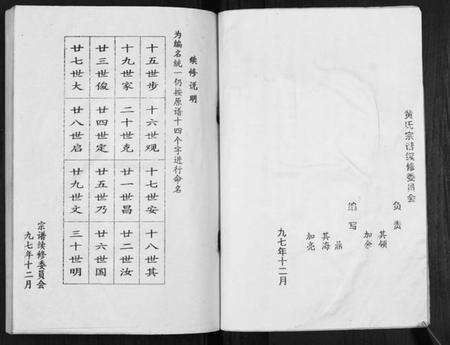 续修说明
为编名统一仍按原谱十四个字进行命名
十五世步
十六世观
十七世安
十八世其
十九世家
二十世克
廿一世昌
廿二世汝
廿三世俊
廿四世定
廿五世乃
廿六世国
廿七世大
廿八世启
廿九世文
三十世明
宗谱续修委員会
九七年十二月
黄氏宗谱续修委员会
负责
其领
加余
编写
其海
加亮
九七年十二月